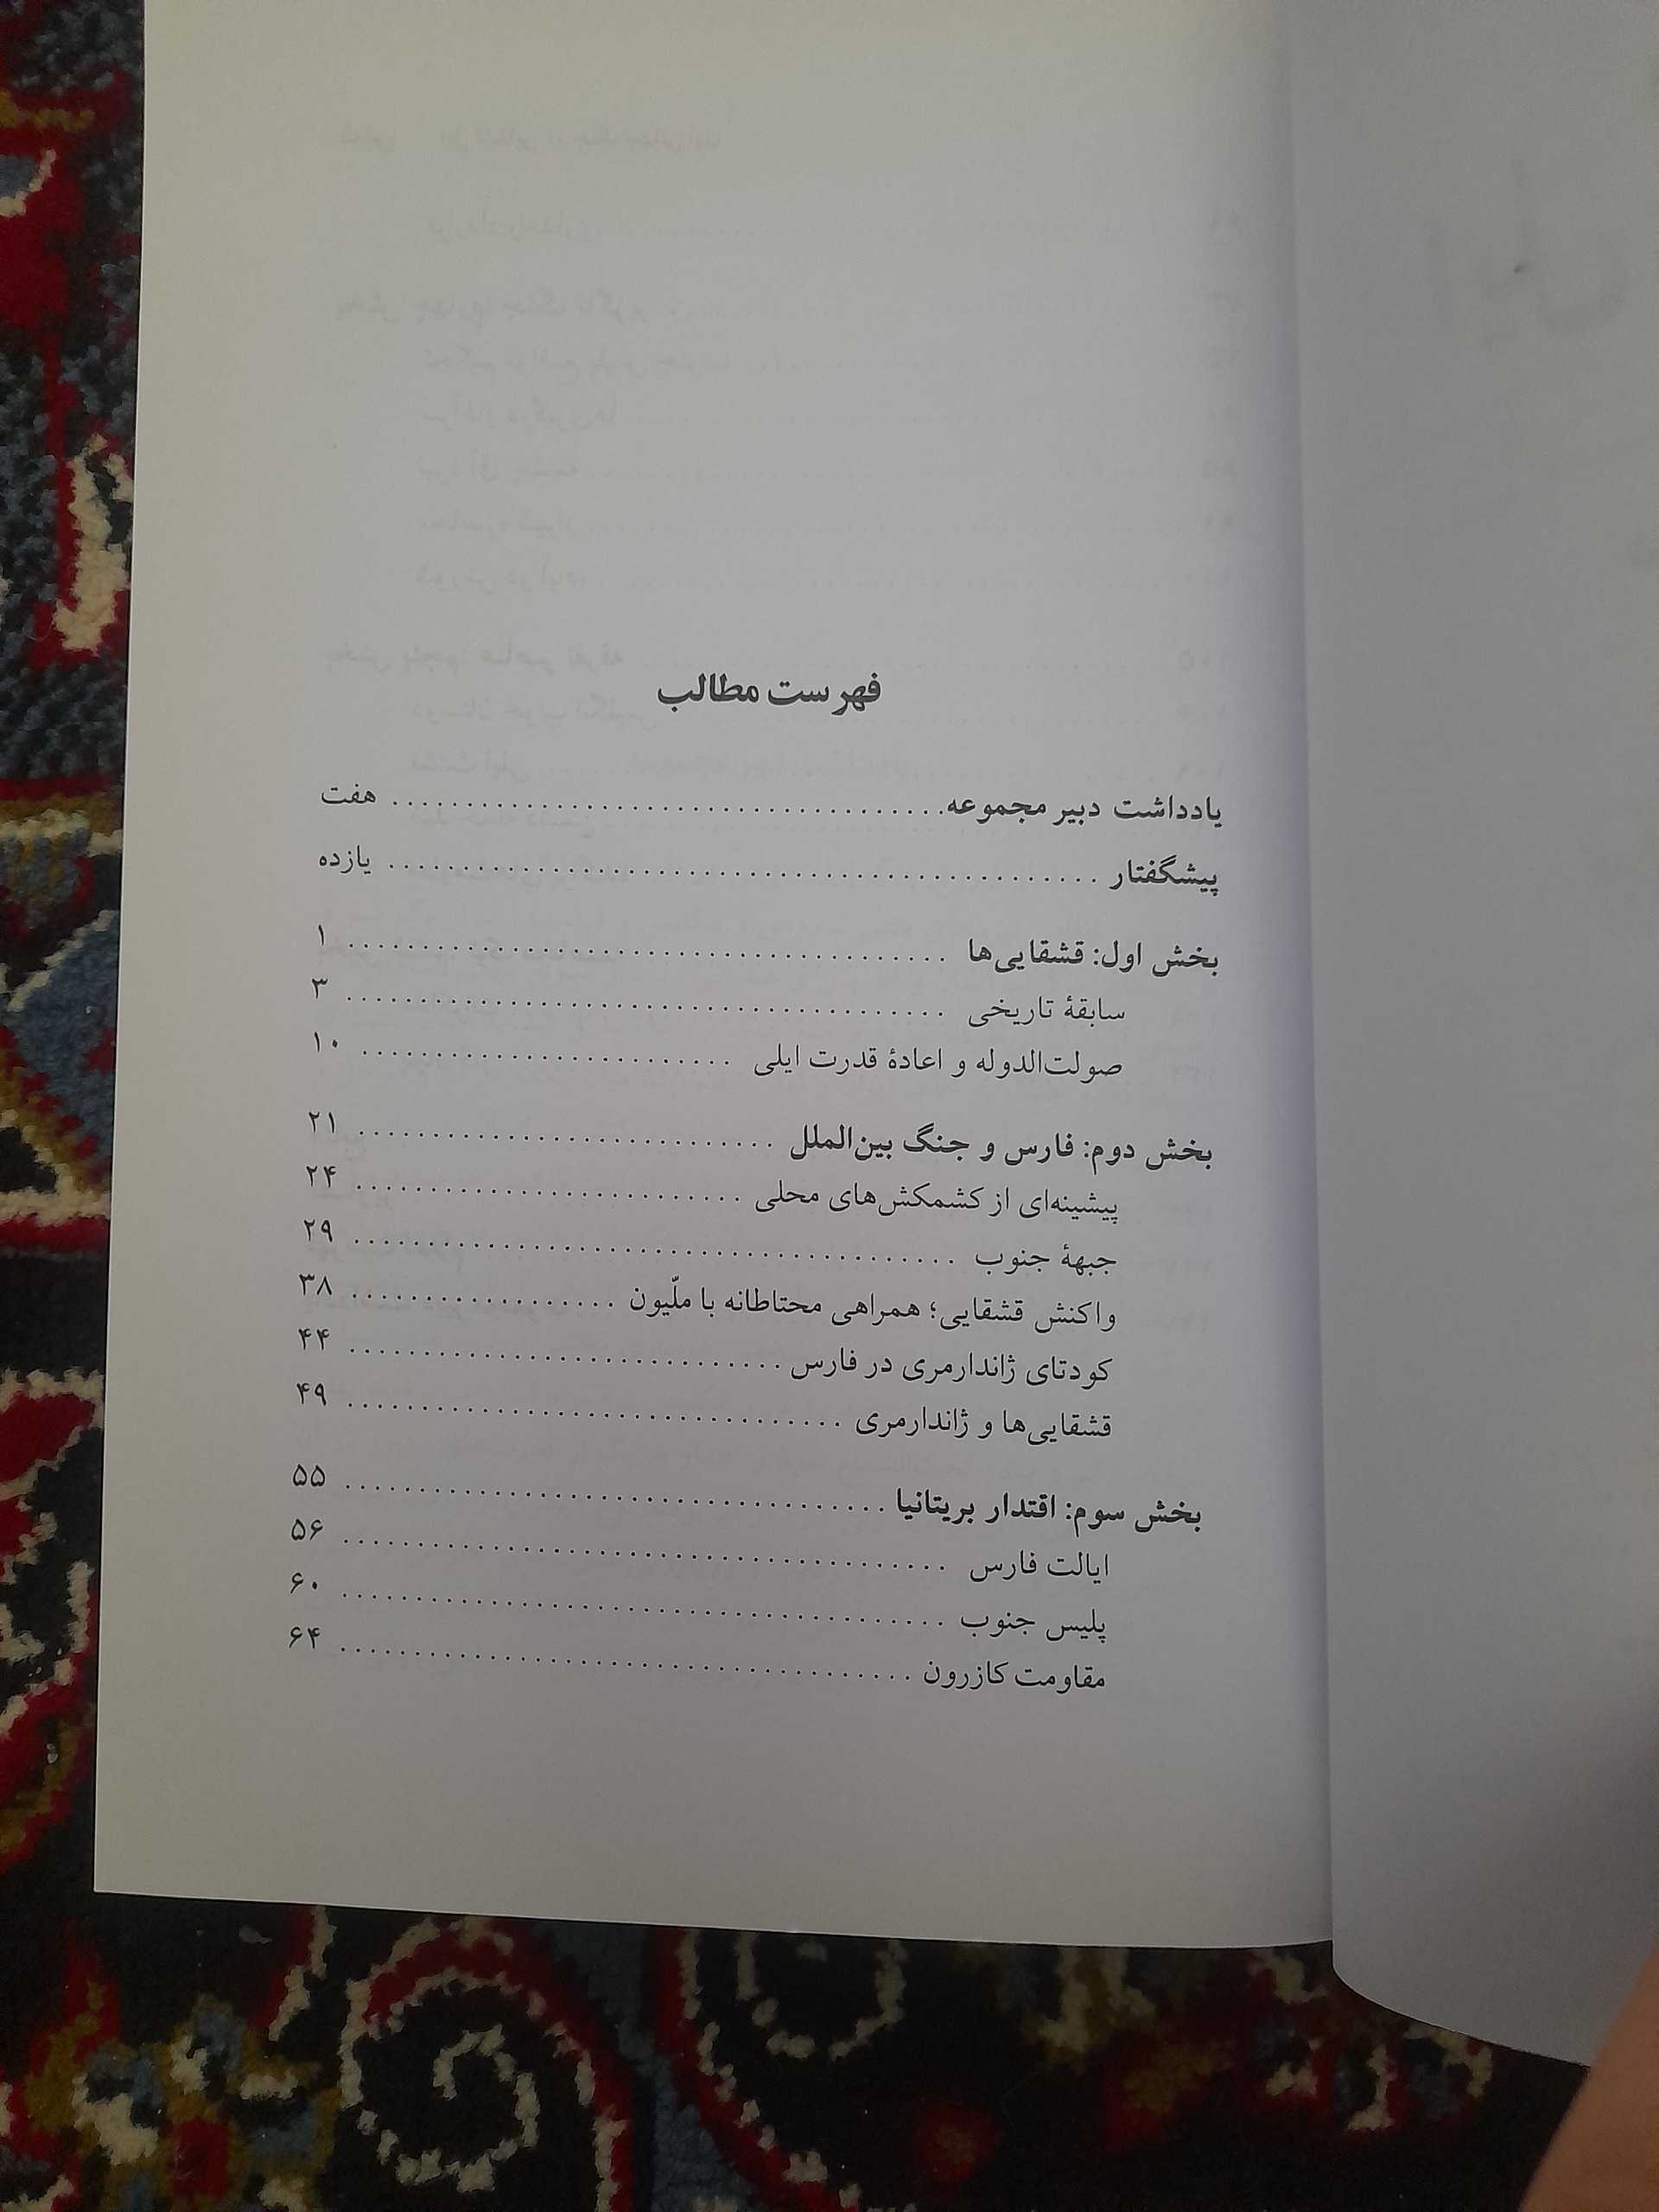 فهرست مطالب
یادداشت دبیر مجموعه ........ هفت
پیشگفتار ........ یازده
بخش اول: قشقایی‌ها ........ ۱
سابقهٔ تاریخی ........ ۳
صولت‌الدوله و اعادهٔ قدرت ایلی ........ ۱۰
بخش دوم: فارس و جنگ بین‌الملل ........ ۲۱
پیشینه‌ای از کشمکش‌های محلی ........ ۲۴
جبههٔ جنوب ........ ۲۹
واکنش قشقایی؛ همراهی محتاطانه با ملّیون ........ ۳۸
کودتای ژاندارمری در فارس ........ ۴۴
قشقایی‌ها و ژاندارمری ........ ۴۹
بخش سوم: اقتدار بریتانیا ........ ۵۵
ایالت فارس ........ ۵۶
پلیس جنوب ........ ۶۰
مقاومت کازرون ........ ۶۴